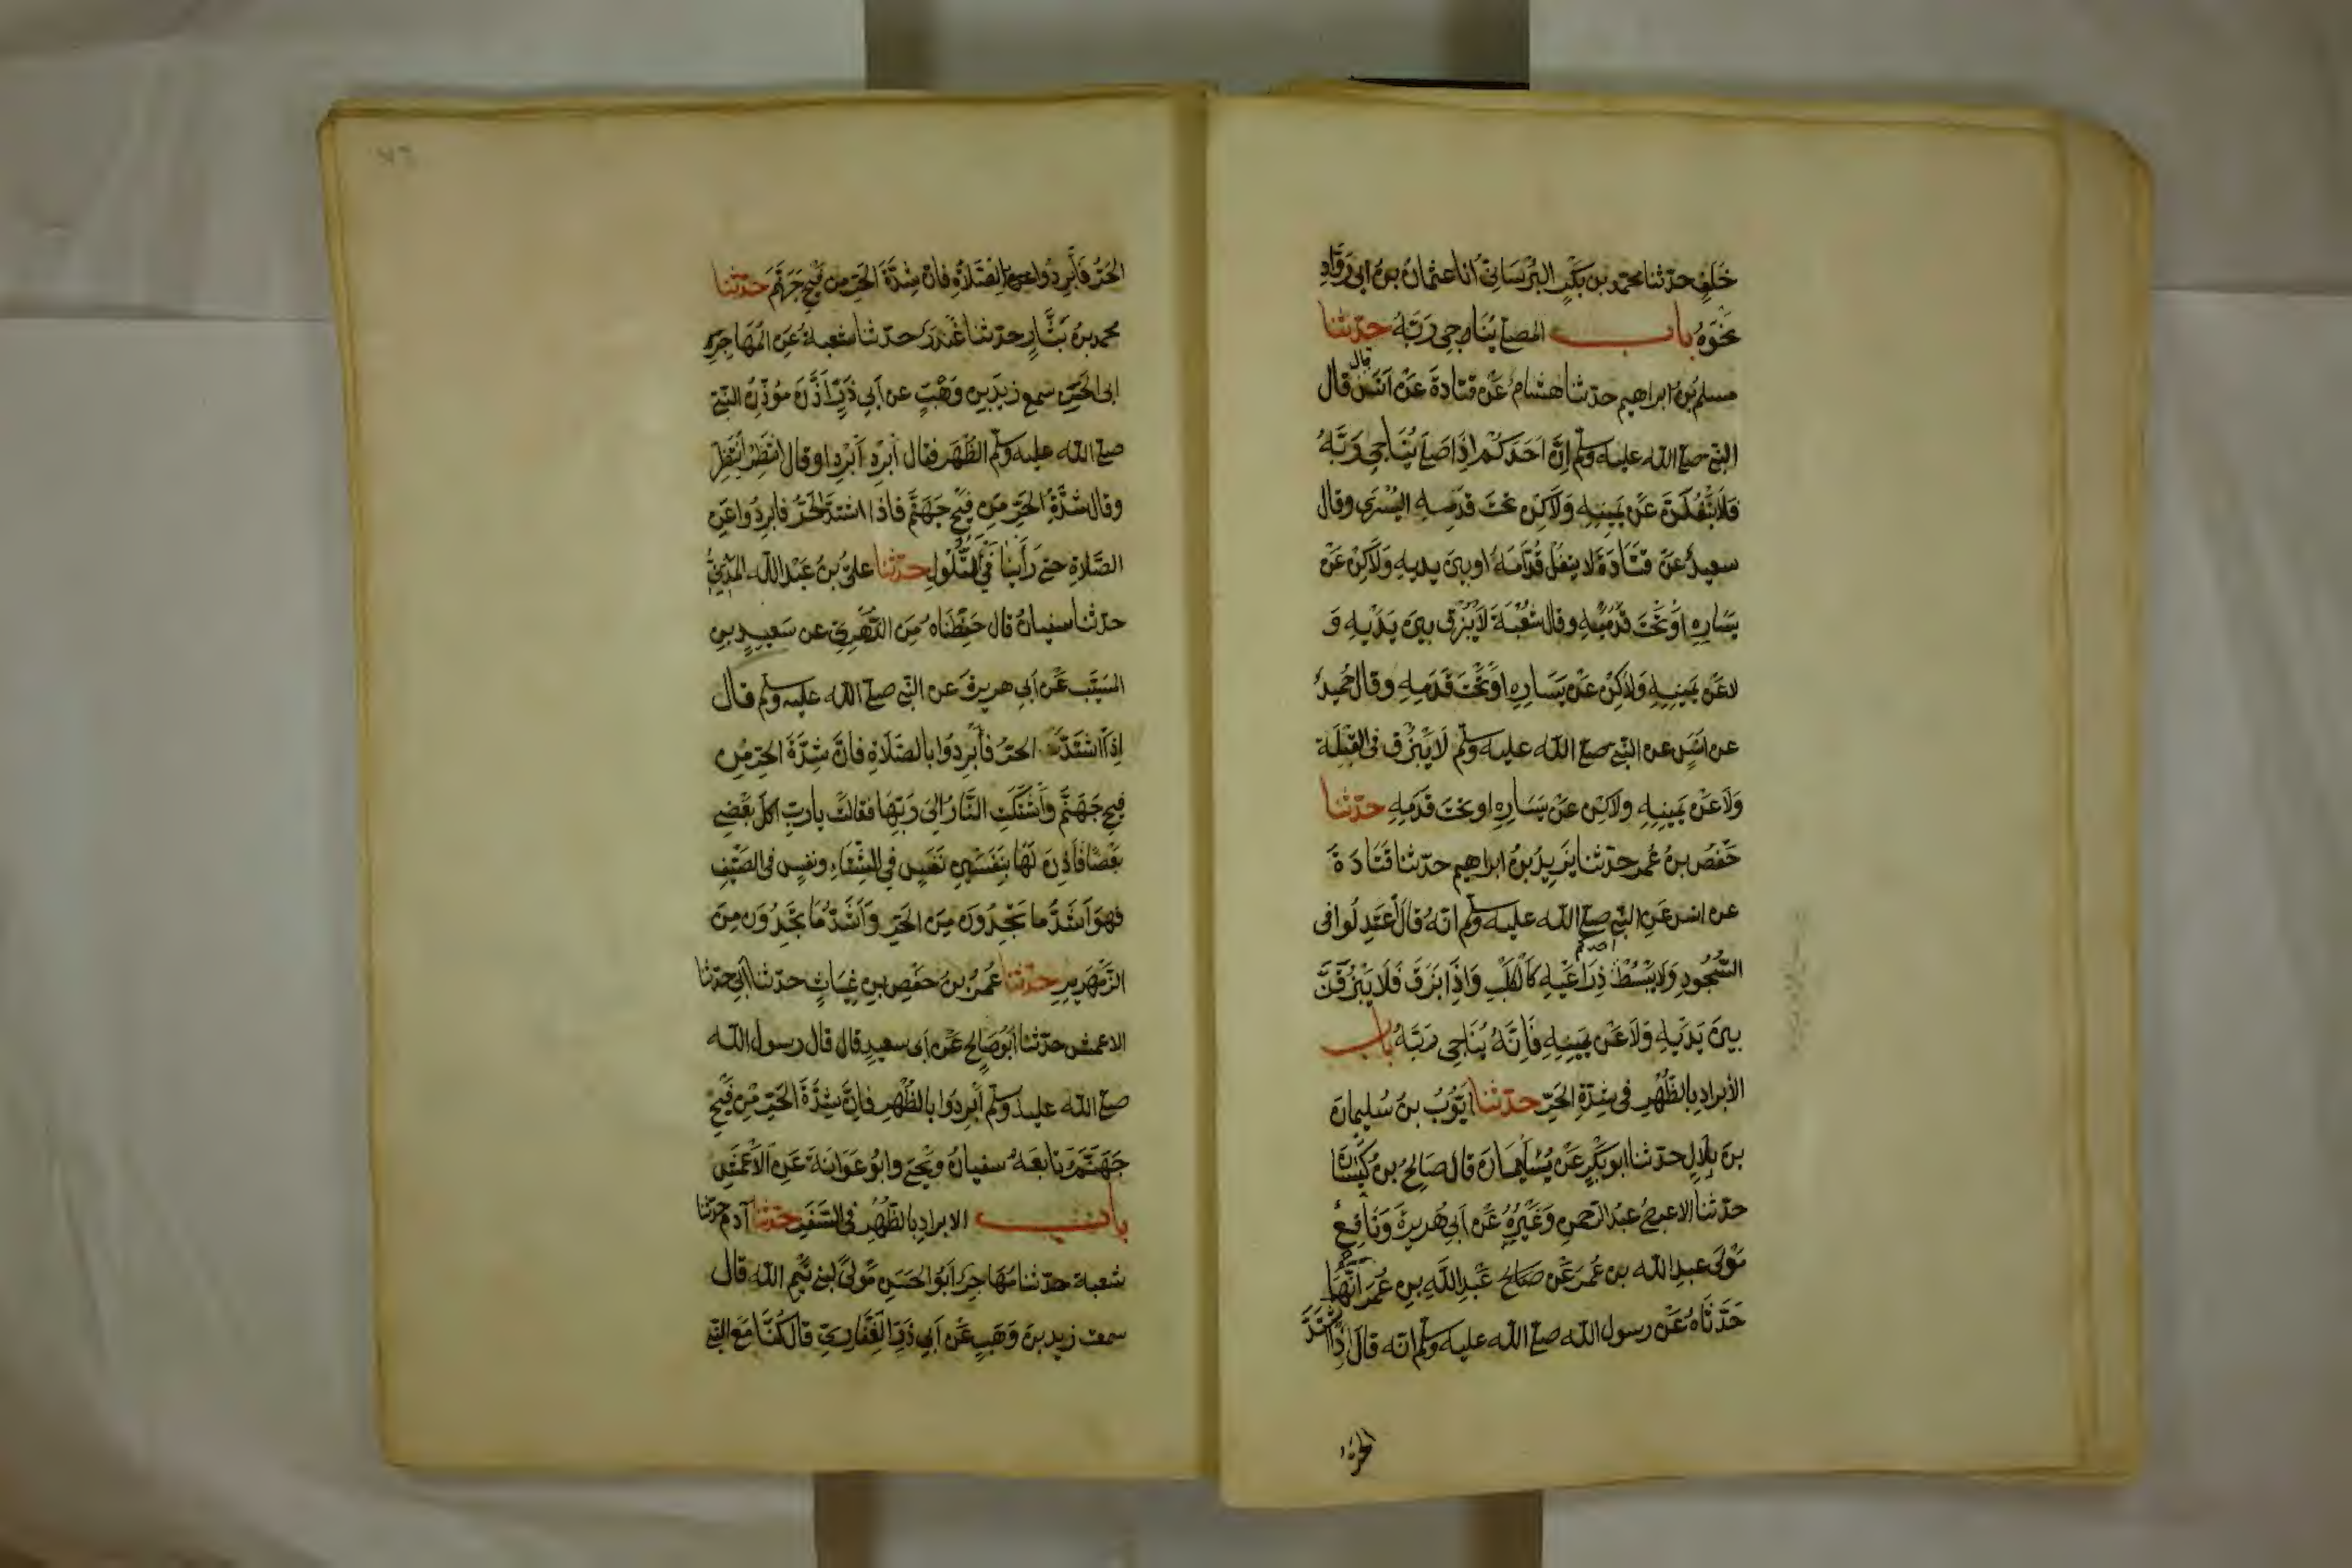 خَلَفٍ حدثنا محمد بن بَكْرٍ البُرْسَانيُّ انا عثمانُ بنُ ابي رَوَّادٍ
نَحْوَهُ باب المصلي يُنَاجِي رَبَّهُ حدثنا
مسلم بنُ ابراهيم حدثنا هشامٌ عَنْ قتادةَ عَنْ اَنَسٍ قال قال
النبي صلى الله عليه وسلم اِنَّ اَحَدَكُمْ اِذَا صَلَّى يُنَاجِي رَبَّهُ
فَلَا يَتْفُلَنَّ عَنْ يَمِينِهِ وَلَاكِنْ تَحْتَ قَدَمِهِ اليُسْرَى وقال
سعيدٌ عَنْ قَتَادَةَ لا يتفل قُدَّامَهُ او بين يديهِ وَلَاكِنْ عَنْ
يَسَارِهِ اَوْ تَحْتَ قَدَمَيْهِ وقال شُعْبَةُ لَا يَبْزُقُ بَيْنَ يَدَيْهِ وَ
لا عَنْ يَمِينِهِ وَلَاكِنْ عَنْ يَسَارِهِ اَوْ تَحْتَ قَدَمِهِ وقال حُمَيْدٌ
عن انَسٍ عن النبي صلى الله عليه وسلم لَا يَبْزُقْ في القِبْلَةِ
وَلَا عَنْ يَمِينِهِ ولاكِنْ عَنْ يَسَارِهِ او تحْتَ قَدَمِهِ حدثنا
حَفْصُ بنُ عُمر حدثنا يَزِيدُ بنُ ابراهيم حدثنا قَتَادَةَ
عن انس عَنِ النبي صلى الله عليه وسلم انهُ قَالَ اعْتَدِلُوا في
السُّجُودِ وَلا يَبْسُطْ احدكم ذِرَاعَيْهِ كَالْكَلْبِ وَاِذَا بَزَقَ فَلَا يَبْزُقَنَّ
بَيْنَ يَدَيْهِ وَلَا عَنْ يَمِينِهِ فَاِنَّهُ يُنَاجِي رَبَّهُ باب
الاِبْرَادِ بِالظُّهْرِ في شِدَّةِ الحَرِّ حدثنا اَيُّوبُ بنُ سُلَيمانَ
بنِ بِلَالٍ حدثنا ابو بَكْرٍ عَنْ سُلَيْمَانَ قال صَالِحُ بنُ كَيْسَانَ
حدثنا الاعرجُ عبدُ الرَّحمنِ وَغَيْرُهُ عَنْ اَبِي هُرَيرةَ وَنَافِعٌ
مَوْلَى عبدِ الله بنِ عُمَرَ عَنْ عَبْدِ اللهِ بنِ عُمَرَ اَنَّهُمَا
حَدَّثَاهُ عَنْ رسول الله صلى الله عليه وسلم انه قَالَ اِذَا اشْتَدَّ
الحرُّ
الحَرُّ فَاَبْرِدُوا عن الصَّلَاةِ فَاِنَّ شِدَّةَ الحَرِّ مِنْ فَيْحِ جَهَنَّمَ حدثنا
محمد بنُ بَشَّارٍ حدثنا غُنْدَرٌ حدثنا شعبةُ عَنِ المُهَاجِرِ
ابي الحَسَنِ سمع زيدَ بن وَهْبٍ عن اَبي ذَرٍّ اَذَّنَ مُؤَذِّنُ النبيّ
صلى الله عليه وسلم الظُّهْرَ فقال اَبْرِدْ اَبْرِدْ اوقال انتَظِرْ انْتَظِرْ
وقال شِدَّةُ الحَرِّ مِن فَيْحِ جَهَنَّمَ فاذا اشتدَّ الحَرُّ فابرِدُوا عَنِ
الصَّلَاةِ حتى رَاَيْنَا فَيْءَ التُّلُولِ حدثنا عليُّ بنُ عَبْدِ الله المدينيُّ
حدثنا سفيانُ قال حَفِظْنَاهُ مِنَ الزُّهْرِيِّ عن سَعِيدِ بنِ
المُسَيَّبِ عَنْ اَبي هريرةَ عن النبي صلى الله عليه وسلم قال
اِذَا اشْتَدَّ الحَرُّ فَاَبْرِدُوا بالصَّلَاةِ فَاِنَّ شِدَّةَ الحَرِّ مِنْ
فَيْحِ جَهَنَّمَ وَاشْتَكَتِ النَّارُ اِلَى رَبِّهَا فقالت يا ربِّ اكَلَ بَعْضِي
بَعْضًا فَاَذِنَ لَهَا بِنَفَسَيْنِ نَفَسٍ في الشِّتَاءِ ونفسٍ في الصَّيْفِ
فهوَ اَشَدُّ ما تَجِدُونَ مِنَ الحَرِّ وَاَشَدُّ مَا تَجِدُونَ مِنَ
الزَّمْهَرِيرِ حدثنا عُمَرُ بنُ حَفْصِ بنِ غِيَاثٍ حدثنا اَبي حدثنا
الاعمش حدثنا اَبُو صَالِحٍ عَنْ ابي سعيدٍ قال قال رسول الله
صلى الله عليه وسلم اَبْرِدُوا بالظُّهْرِ فَاِنَّ شِدَّةَ الحَرِّ مِنْ فَيْحِ
جَهَنَّمَ تَابَعَهُ سفيانُ ويَحْيَى وابُو عَوَانَةَ عَنِ الاَعْمَشِ
باب الابرادِ بالظُّهْرِ في السَّفَرِ حدثنا آدم حدثنا
شعبة حدثنا مُهَاجِرٌ اَبُو الحَسَنِ مَوْلًى لبني تَيْمِ الله قال
سمعت زيد بنَ وَهْبٍ عَنْ اَبي ذَرٍّ الغِفَارِيِّ قال كُنَّا مَعَ النبي